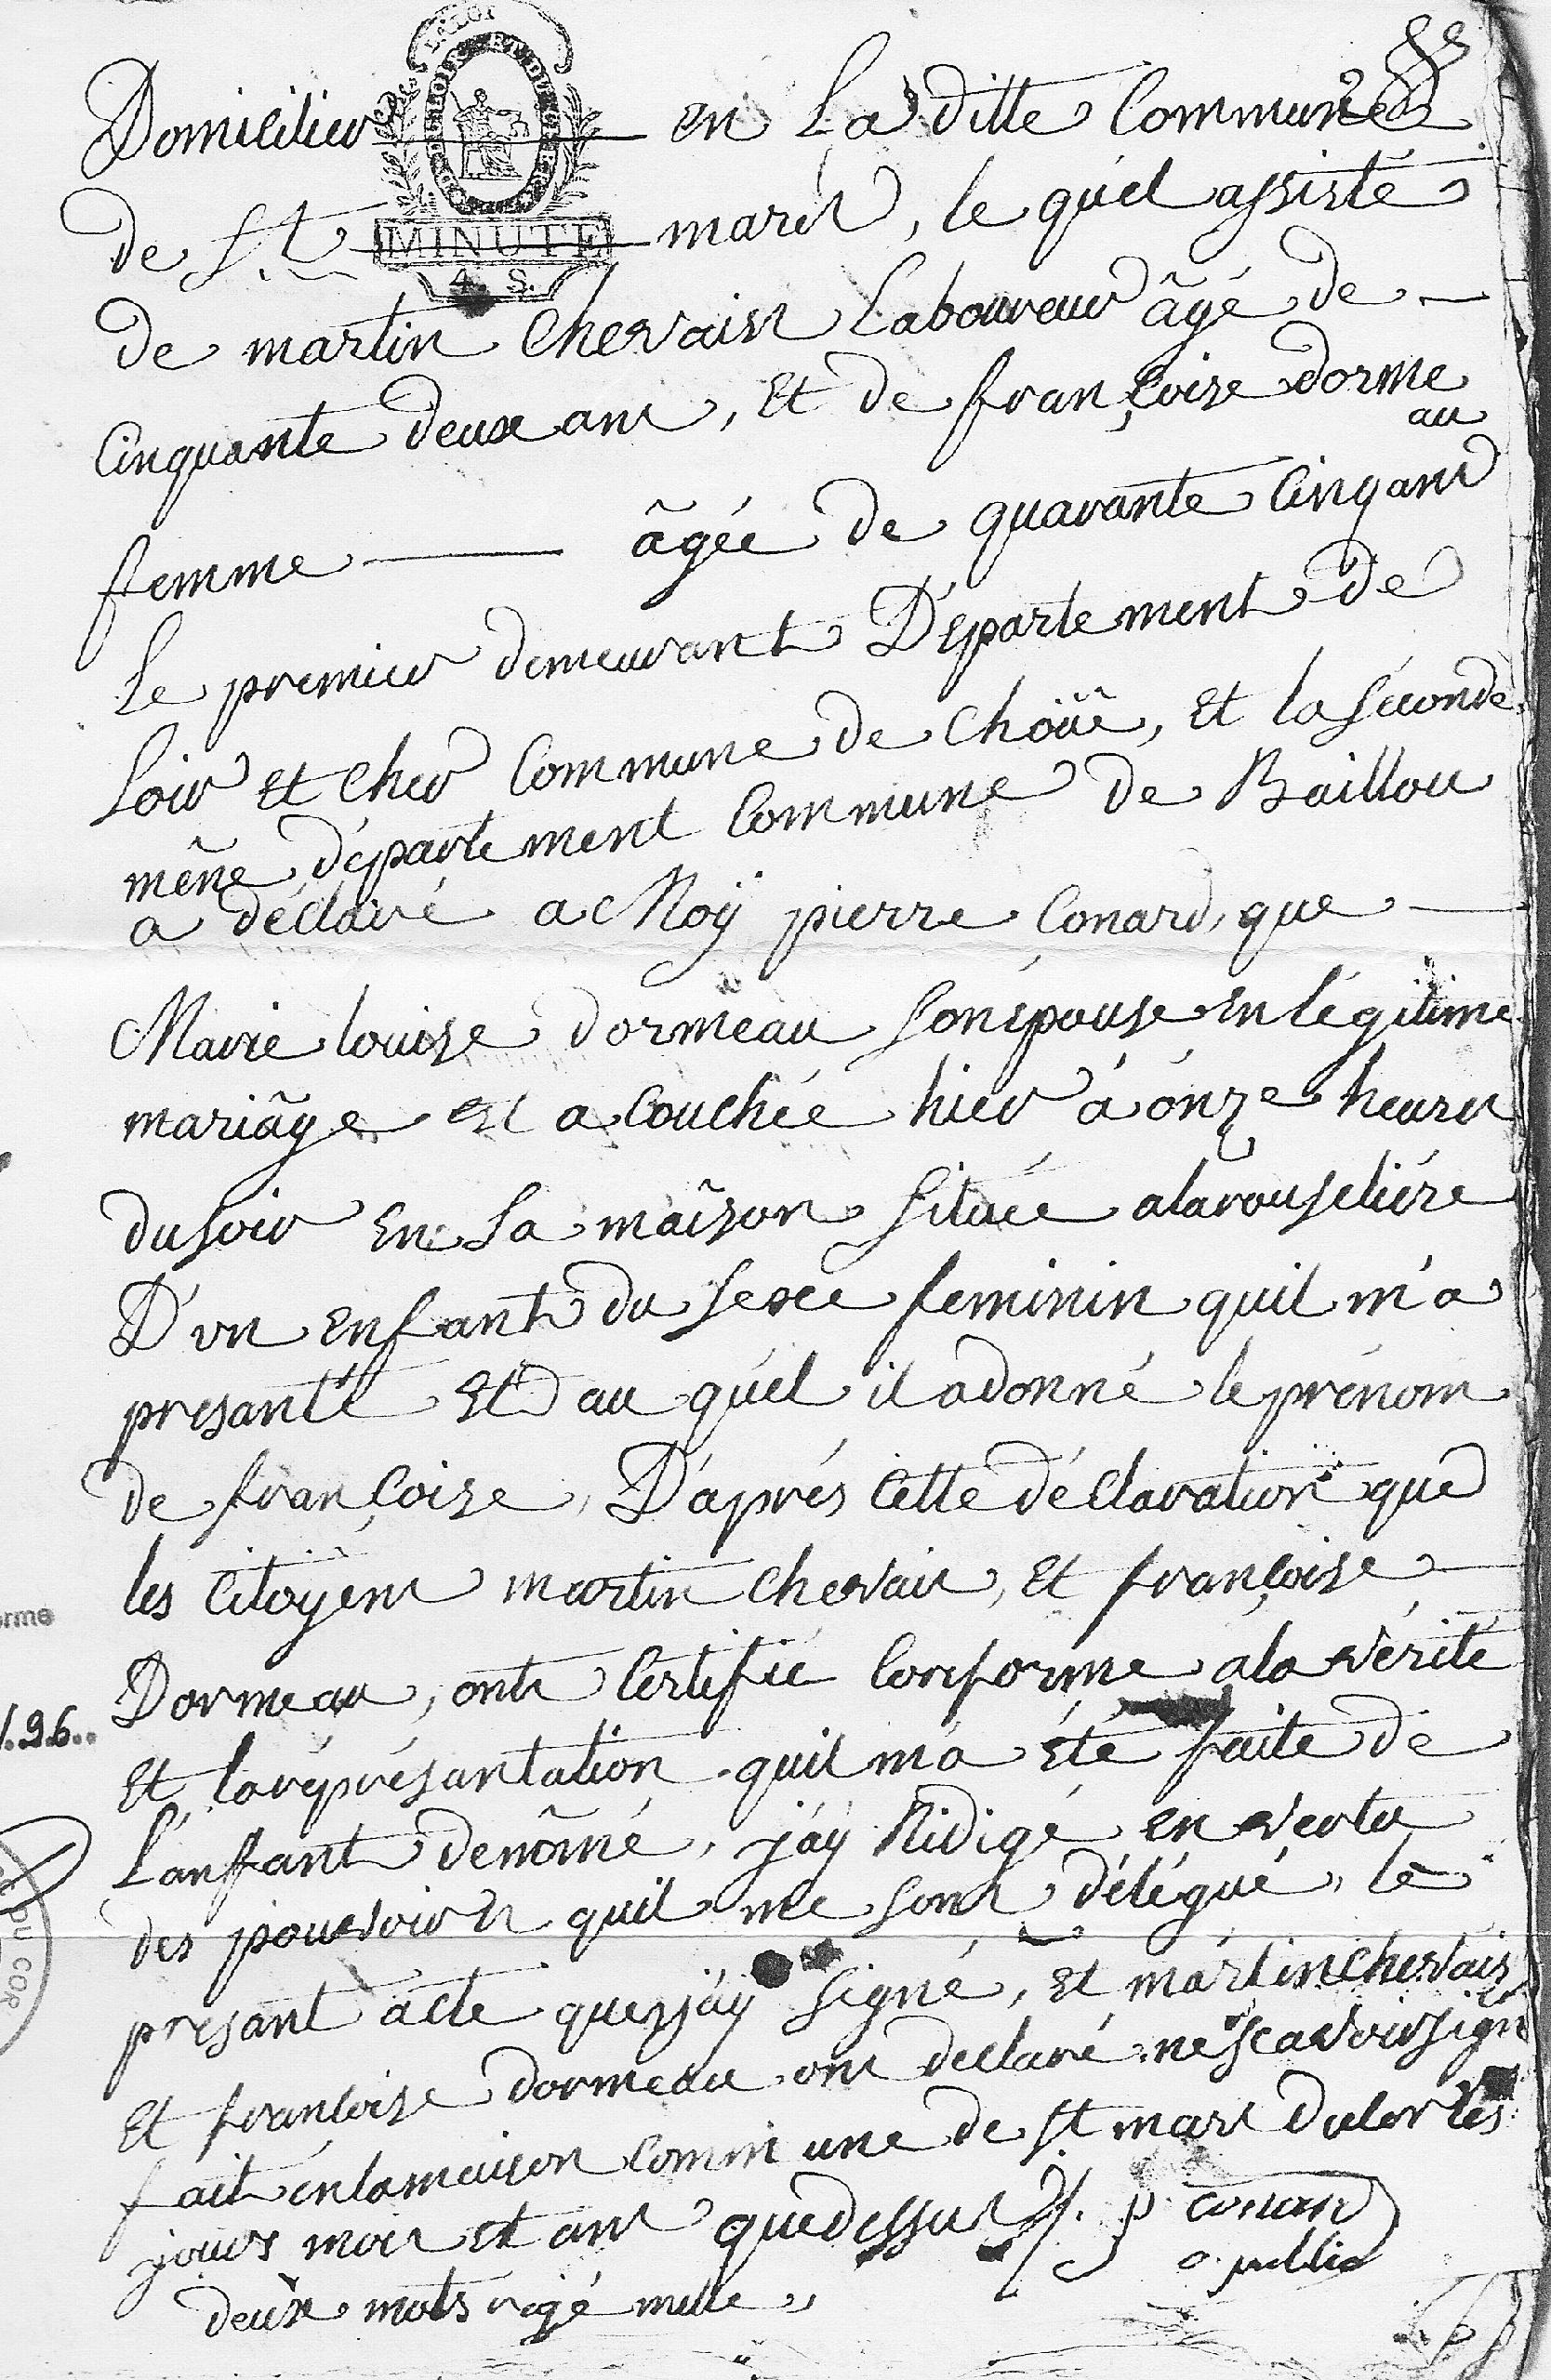 Domicilier en La ditte Commune
de St marcs, le quel assisté
MINUTE
4. S.
de martin Chervais Laboureur âgé de
Cinquante deux ans, Et de françoise dorme
au
femme âgée de quarante Cinq ans
Le premier demeurant Département de
Loir et cher Commune de Choüe, Et la seconde
même département Commune de Baillou
a déclaré a Moÿ pierre Conard, que
Marie louise dormeau son épouse en légitime
mariâge est a couchée hier à onze heures
du soir En Sa maison située a la rouseliére
D'un Enfant du sexe feminin quil m'a
presanté Et au quel il a donné le prénom
de françoise, D'aprés Cette déclaration que
les Citoyens martin chervais, Et françoise
Dormeau, ont Certifié Conforme a la vérité
Et la réprésantation quil m'a été faite de
L'anffant denômé, j'aÿ Ridigé en vertu
des pouvoirs quil me sont délégué, le
presant acte que j'aÿ signé, Et martin chervais
Et françoise dormeau ont declaré ne scavoir sign
fait en la maison Commune de St mars dulor les
jours mois et ans que dessus p conard
o. public
deux mots rayé nulle
orme
1.96..
DU COR